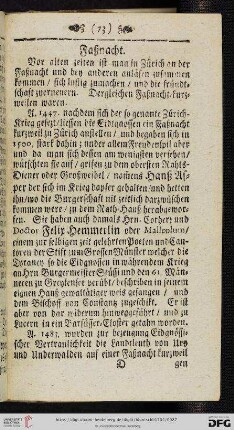 (73)
Faßnacht.
Vor alten zeiten ist man in Zürich an der
Faßnacht und bey anderen anläsen zusammen
kommen / sich lustig zumachen / und die fründt-
schaft zuerneuern. Dergleichen Faßnacht-kurz-
weilen waren.
A. 1447. nachdem sich der so genante Zürich-
Krieg gelegt / liessen die Eidtgnossen ein Faßnacht
kurzweil zu Zürich anstellen / und begaben sich in
1500. stark dahin ; under allem Freudenspil aber
und da man sich dessen am wenigsten versehen /
wütschten sie auf / grifen zu dem obersten Rahts-
Diener oder Großweibel / namens Hanß As-
per der sich im Krieg dapfer gehalten / und hetten
ihn / wo die Burgerschaft nit zeitlich darzwüschen
kommen were / zu dem Raht-Hauß herabgewor-
fen. Sie haben auch damals Hrn. Corherr und
Doctor Felix Hemmerlin oder Malleolum /
einem zur selbigen zeit gelehrten Poeten und Can-
toren der Stift zum Grossen Münster welcher die
Thraney so die Eidgnossen in währendem Krieg
an Hrn Burgermeister Stüssi und den 61. Män-
neren zu Greyfensee verübt / beschriben in seinem
eignen Hauß gewaltthätiger weis gefangen / und
dem Bischoff von Constanz zugeschikt. Er ist
aber von dar widerum hinweggeführt / und zu
Lucern in ein Barfüsser-Closter getahn worden.
A. 1483. wurden zur bezeugung Eidgnössi-
scher Vertraulichkeit die Landtleuth von Ury
und Underwalden auf einer Faßnacht kurzweil
D gen